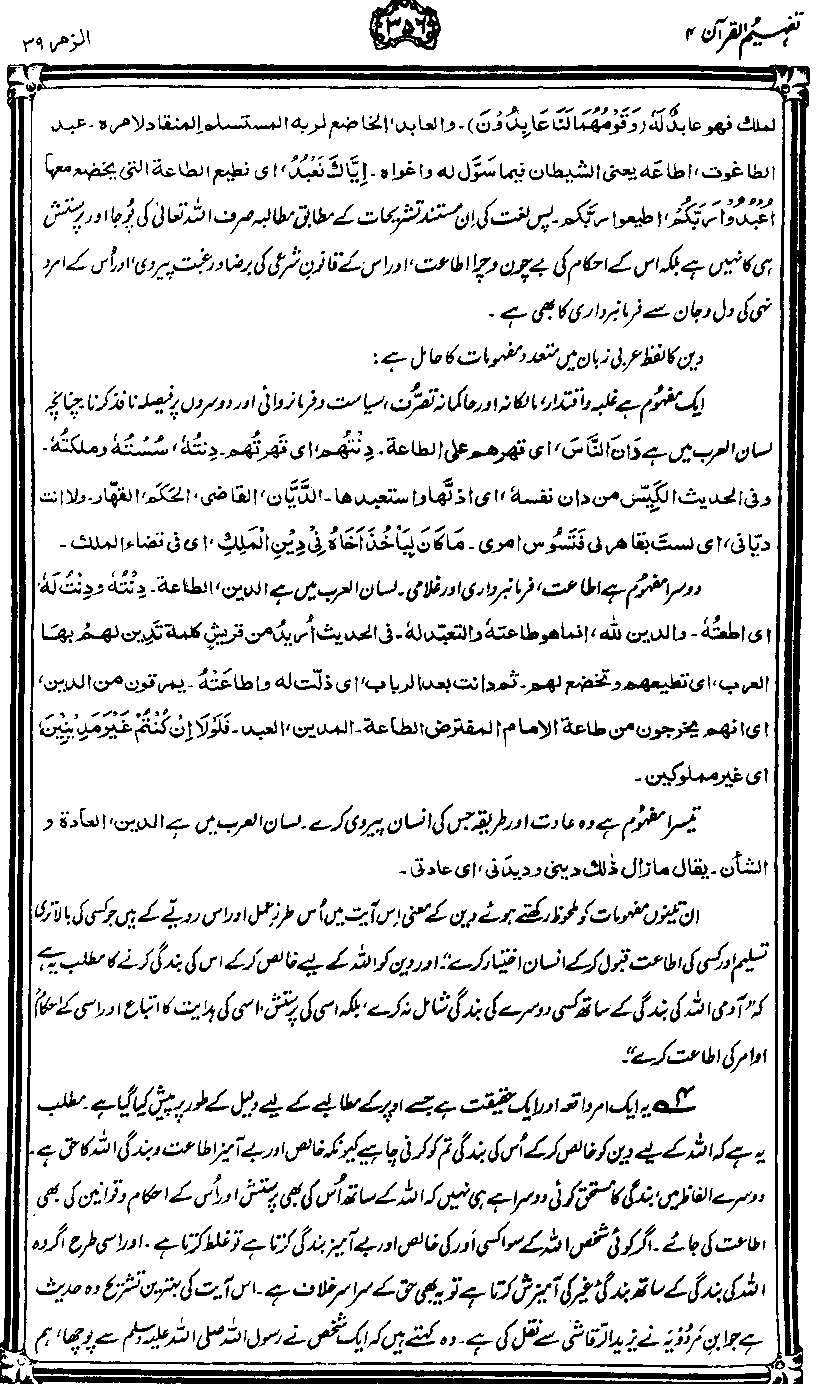 تفہیم القرآن ۴
۳۵۶
الزمر ۳۹
لملك فهو عابدٌ لَهٗ (وَقَوْمُهُمَا لَنَا عَابِدُوْنَ)۔ والعابد، الخاضع لربه المستسلم المنقاد لامره۔ عبد
الطاغوت، اطاعَه يعنى الشيطان فيما سَوَّل له واغواه۔ اِيَّاكَ نَعْبُدُ، اى نطيع الطاعة التى يخضع معها
اُعْبُدُوْا رَبَّكُمْ، اطيعوا ربّكم۔ پس لغت کی اِن مستند تشریحات کے مطابق مطالبہ صرف اللہ تعالیٰ کی پُوجا اور پرستش
ہی کا نہیں ہے بلکہ اس کے احکام کی بے چون وچرا اطاعت، اور اس کے قانونِ شرعی کی برضا ورغبت پیروی، اور اُس کے امر و
نہی کی دل وجان سے فرمانبرداری کا بھی ہے ۔
دین کا لفظ عربی زبان میں متعدد مفہومات کا حامل ہے :
ایک مفہُوم ہے غلبہ واقتدار، مالکانہ اور حاکمانہ تصرُّف، سیاست و فرمانروائی اور دوسروں پر فیصلہ نافذ کرنا چنانچہ
لسان العرب میں ہے دَانَ النَّاسَ، اى قهرهم على الطاعة۔ دِنْتُهم، اى قَهرتُهم۔ دِنتُهٗ، سُسْتُهٗ وملكتُهٗ۔
وفى الحديث الكَيِّس من دان نفسهٗ، اى اذلّها واستعبدها۔ الدَّيَّان، القاضى، الحَكَم، القهّار۔ ولا انت
ديّانى، اى لستَ بقاهرلى فَتَسُوس امرى۔ مَا كَانَ لِيَاْخُذَ اَخَاهُ فِىْ دِيْنِ الْمَلِكِ، اى فى قضاء الملك۔
دوسرا مفہُوم ہے اطاعت، فرمانبرداری اور غلامی۔ لسان العرب میں ہے الدين، الطاعة۔ دِنْتُهٗ ودِنْتُ لَهٗ،
اى اطعتُهٗ۔ والدين لله، انما هو طاعتهٗ والتعبّد لهٗ۔ فى الحديث اُريدُ من قريشٍ كلمةً تَدِين لهم بها
العرب، اى تطيعهم وتخضع لهم۔ ثم دانت بعد الرباب، اى ذلّت له واطاعَتْهُ۔ يمرقون من الدين،
اى انهم يخرجون من طاعة الامام المفترض الطاعة۔ المدين، العبد۔ فَلَوْلَا اِنْ كُنْتُمْ غَيْرَ مَدِيْنِيْنَ،
اى غير مملوكين۔
تیسرا مفہُوم ہے وہ عادت اور طریقہ جس کی انسان پیروی کرے۔ لسان العرب میں ہے الدين، العادة و
الشأن۔ يقال مازال ذلك دينى وديدنى، اى عادتى۔
ان تینوں مفہومات کو ملحوظ رکھتے ہوئے دین کے معنی اِس آیت میں "اُس طرزِ عمل اور اس رویّے کے ہیں جو کسی کی بالاتری
تسلیم اور کسی کی اطاعت قبول کرکے انسان اختیار کرے"۔ اور دین کو اللہ کے لیے خالص کرکے اس کی بندگی کرنے کا مطلب یہ ہے
کہ "آدمی اللہ کی بندگی کے ساتھ کسی دوسرے کی بندگی شامل نہ کرے، بلکہ اسی کی پرستش، اسی کی ہدایت کا اتباع اور اسی کے احکام و
اوامر کی اطاعت کرے"۔
۴ یہ ایک امرِ واقعہ اور ایک حقیقت ہے جسے اوپر کے مطالبے کے لیے دلیل کے طور پر پیش کیا گیا ہے۔ مطلب
یہ ہے کہ اللہ کے لیے دین کو خالص کرکے اُس کی بندگی تم کو کرنی چاہیے کیونکہ خالص اور بے آمیز اطاعت و بندگی اللہ کا حق ہے۔
دوسرے الفاظ میں، بندگی کا مستحق کوئی دوسرا ہے ہی نہیں کہ اللہ کے ساتھ اُس کی بھی پرستش اور اُس کے احکام وقوانین کی بھی
اطاعت کی جائے۔ اگر کوئی شخص اللہ کے سوا کسی اَور کی خالص اور بے آمیز بندگی کرتا ہے تو غلط کرتا ہے۔ اور اسی طرح اگر وہ
اللہ کی بندگی کے ساتھ بندگیِ غیر کی آمیزش کرتا ہے تو یہ بھی حق کے سراسر خلاف ہے۔ اس آیت کی بہترین تشریح وہ حدیث
ہے جو ابن مَردُوْیَہ نے یزید الرّقاشی سے نقل کی ہے۔ وہ کہتے ہیں کہ ایک شخص نے رسول اللہ صلی اللہ علیہ وسلم سے پوچھا، ہم